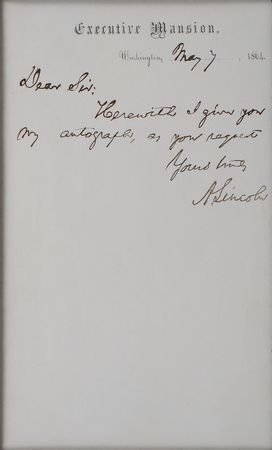 Executive Mansion,
Washington, May 7, 1864.
Dear Sir:
Herewith I give you
my autograph, as you request
Yours truly
A. Lincoln